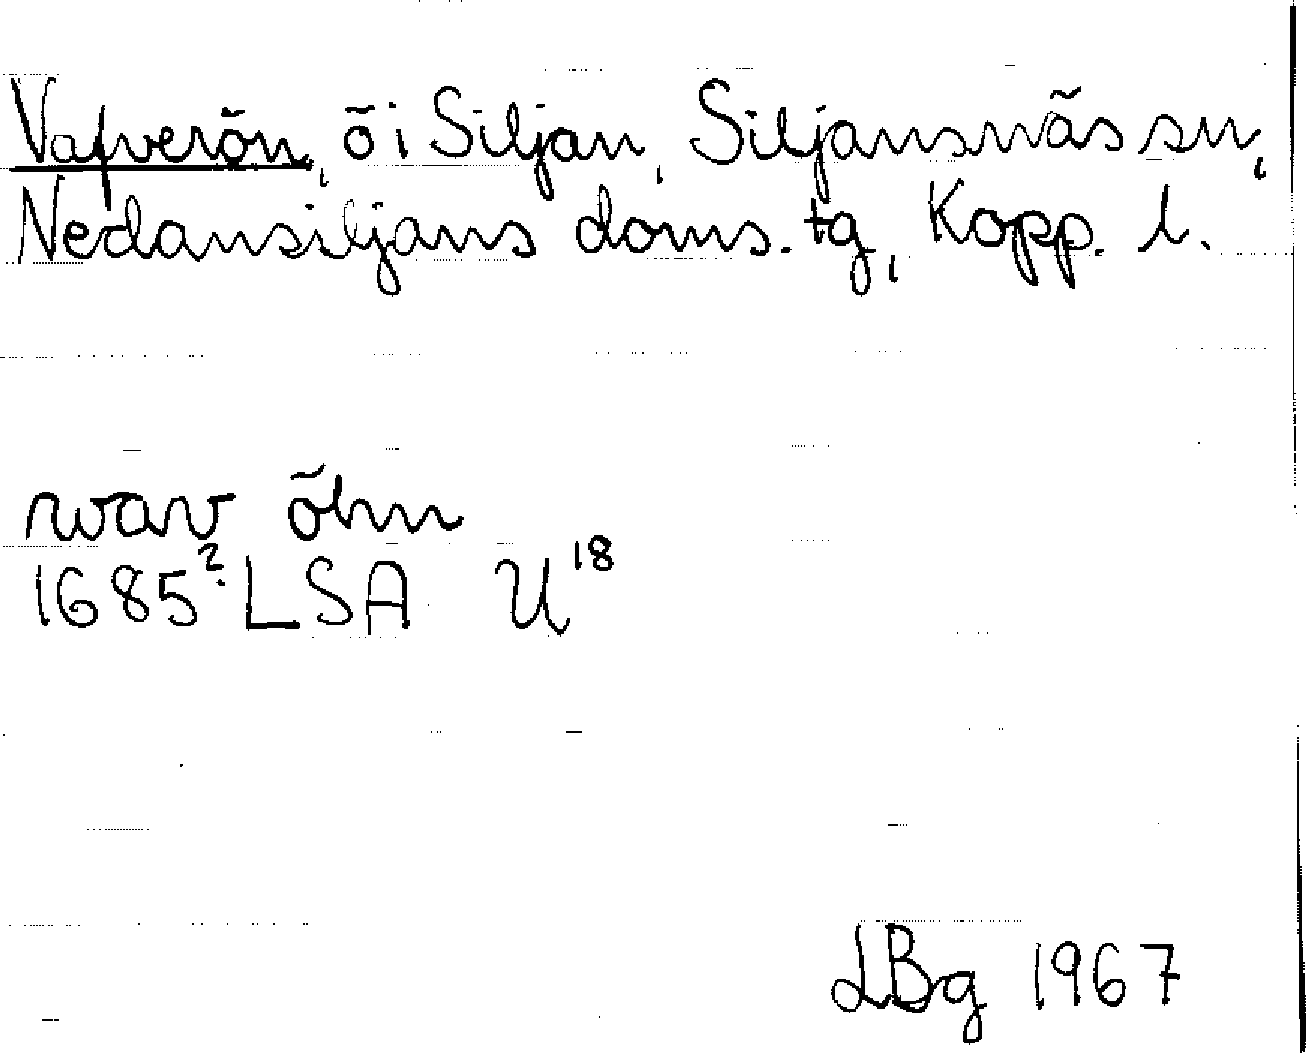 Vafverön, ö i Siljan, Siljansnäs sn,
Nedansiljans doms. tg, Kopp. l.
wav öhn
1685? LSA U18
LBg 1967